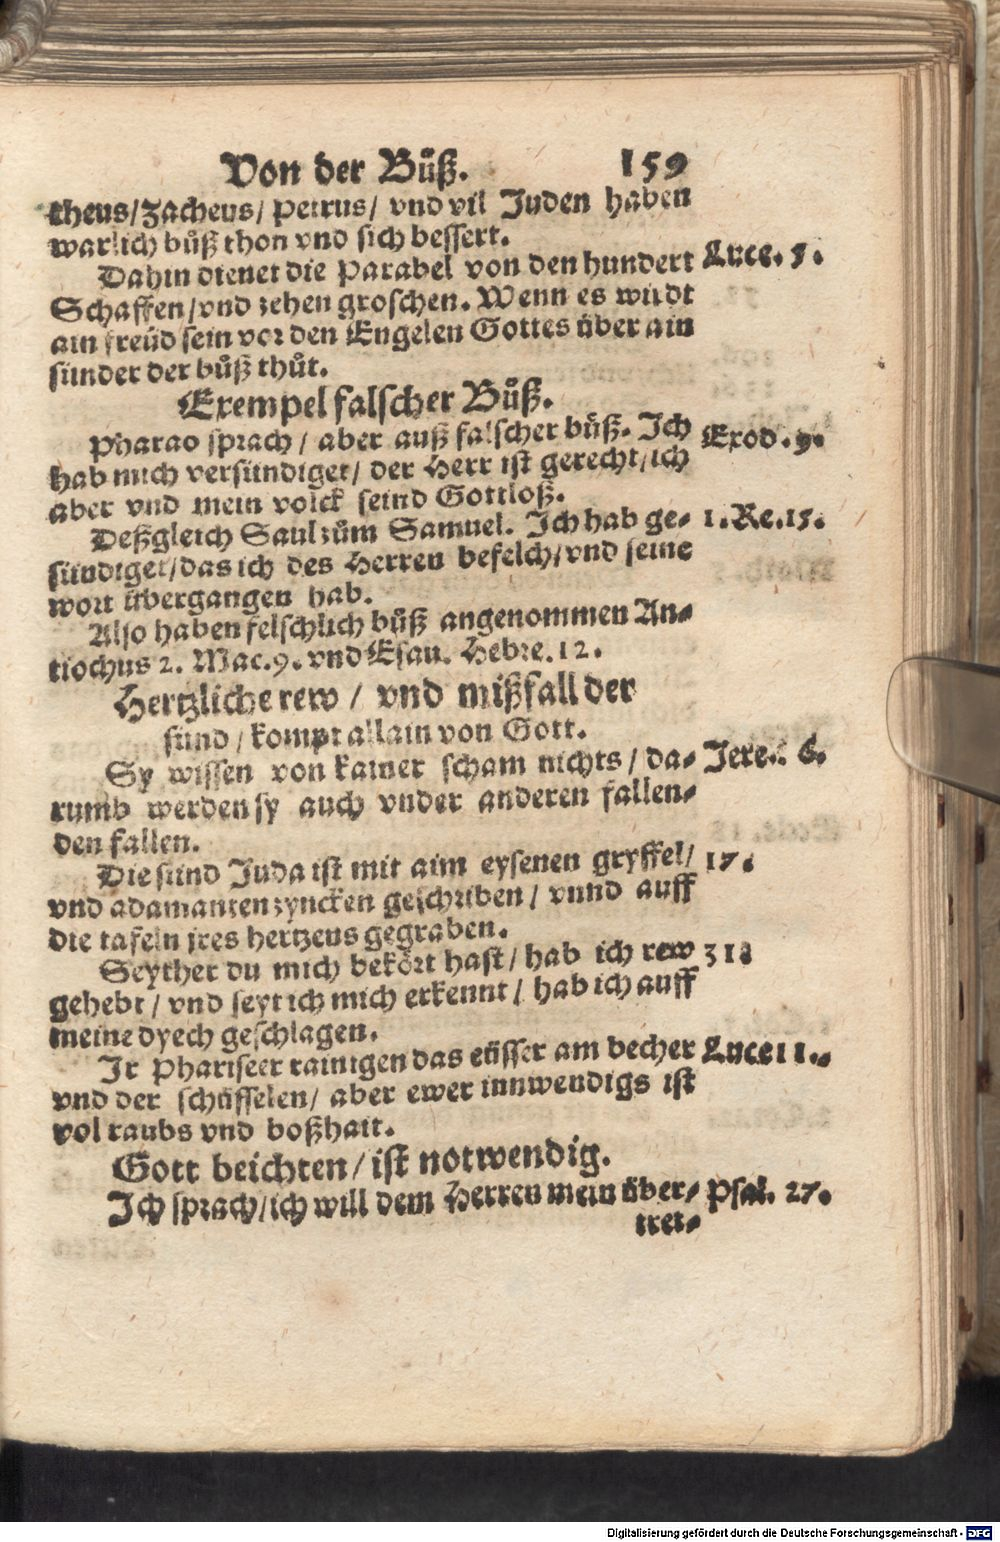 Von der Bůß. 159
theus/Zacheus/ Petrus/ vnd vil Juden haben
warlich bůß thon vnd sich bessert.
Dahin dienet die Parabel von den hundert Luce. 5.
Schaffen/vnd zehen groschen. Wenn es wirdt
ain freüd sein vor den Engelen Gottes über ain
sünder der bůß thůt.
Exempel falscher Bůß.
Pharao sprach/ aber auß falscher bůß. Ich Exod. 9.
hab mich versündiget/ der Herr ist gerecht/ich
aber vnd mein volck seind Gottloß.
Deßgleich Saul zům Samuel. Ich hab ge- 1. Re. 15.
sündiget/das ich des Herren befelch/vnd seine
wort übergangen hab.
Also haben felschlich bůß angenommen An-
tiochus 2. Mac. 9. vnd Esau. Hebre. 12.
Hertzliche rew / vnd mißfall der
sünd/ kompt allain von Gott.
Sy wissen von kainer scham nichts/ da- Jere. 6.
rumb werden sy auch vnder anderen fallen-
den fallen.
Die sünd Juda ist mit aim eysenen gryffel/ 17.
vnd adamanten zyncken geschriben/ vnnd auff
die tafeln jres hertzens gegraben.
Seyther du mich bekört hast/ hab ich rew 31.
gehebt/ vnd seyt ich mich erkennt/ hab ich auff
meine dyech geschlagen.
Ir Phariseer rainigen das eüsser am becher Luce 11.
vnd der schüsselen/ aber ewer innwendigs ist
vol raubs vnd boßhait.
Gott beichten/ ist notwendig.
Ich sprach/ich will dem Herren mein über- Psal. 27.
tret-
Digitalisierung gefördert durch die Deutsche Forschungsgemeinschaft - DFG